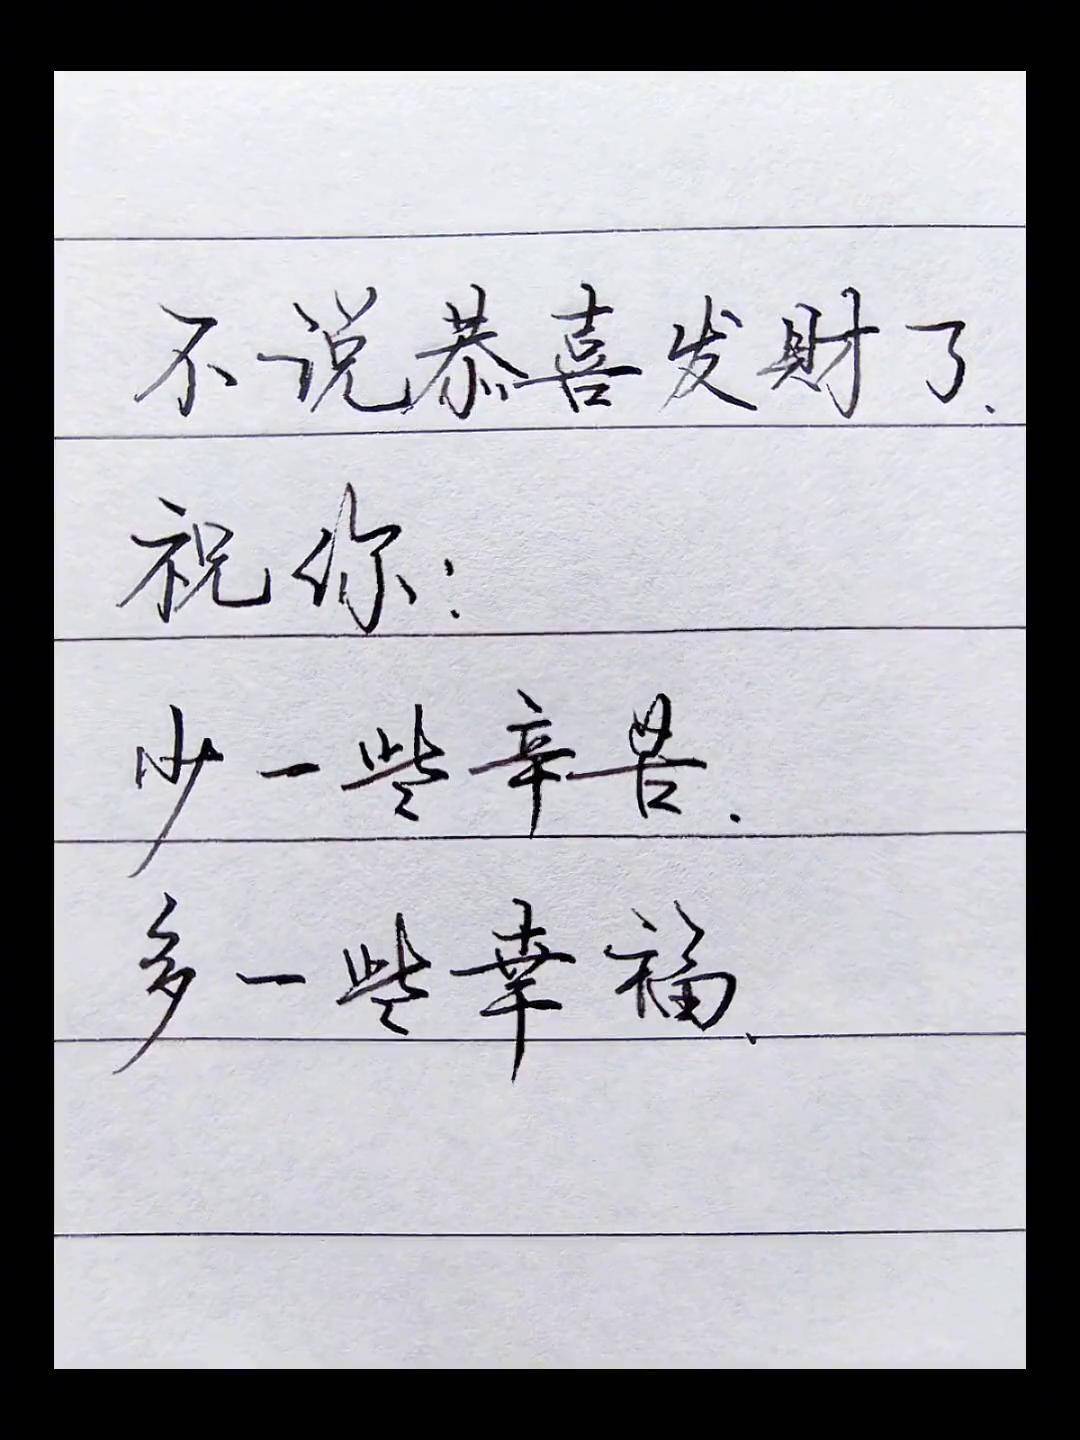 不说恭喜发财了.
祝你:
少一些辛苦.
多一些幸福.